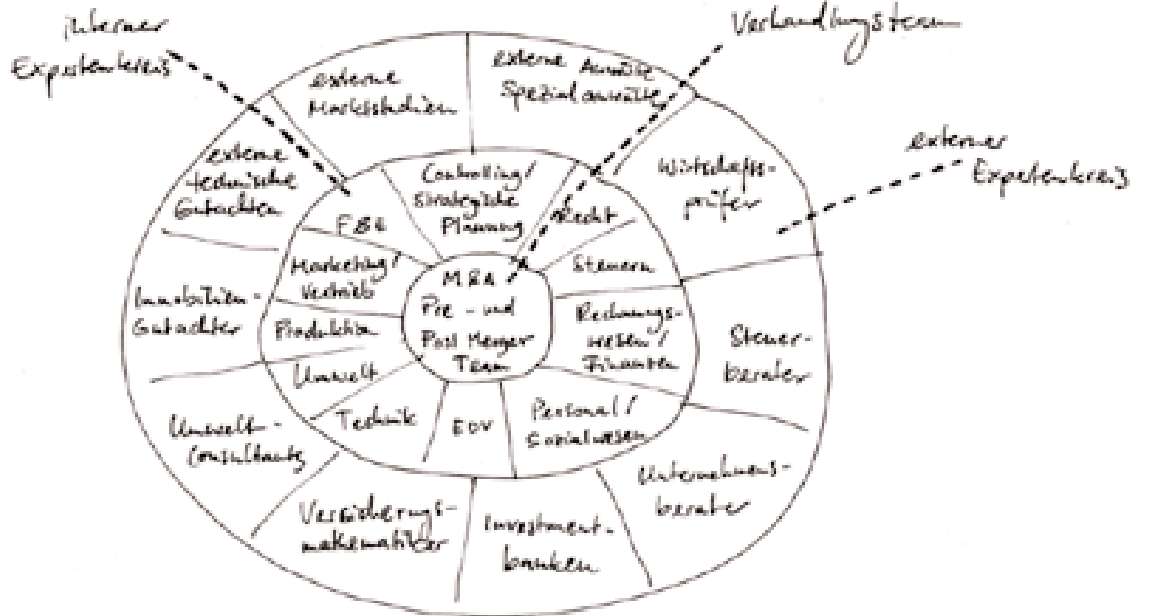 interner
Expertenkreis
Verhandlungsteam
externer
Expertenkreis
externe
Marktstudien
externe Anwälte
Spezialanwälte
Wirtschafts-
prüfer
Steuer-
berater
Unternehmens-
berater
Investment-
banken
Versicherungs-
mathematiker
Umwelt-
consultants
Immobilien-
Gutachter
externe
technische
Gutachten
Controlling/
Strategische
Planung
Recht
Steuern
Rechnungs-
wesen/
Finanzen
Personal/
Sozialwesen
EDV
Technik
Umwelt
Produktion
Marketing/
Vertrieb
F&E
M&A
Pre- und
Post Merger
Team